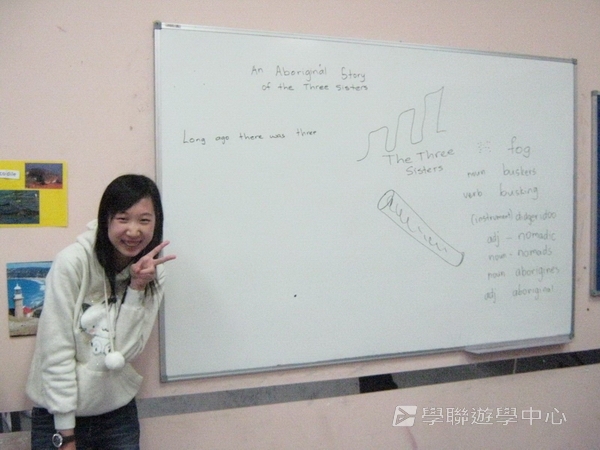 An Aboriginal Story
of the Three Sisters
Long ago there was three
The Three
Sisters
fog
noun buskers
verb busking
(instrument) didgeridoo
adj - nomadic
noun - nomads
noun aborigines
adj aboriginal
學聯遊學中心